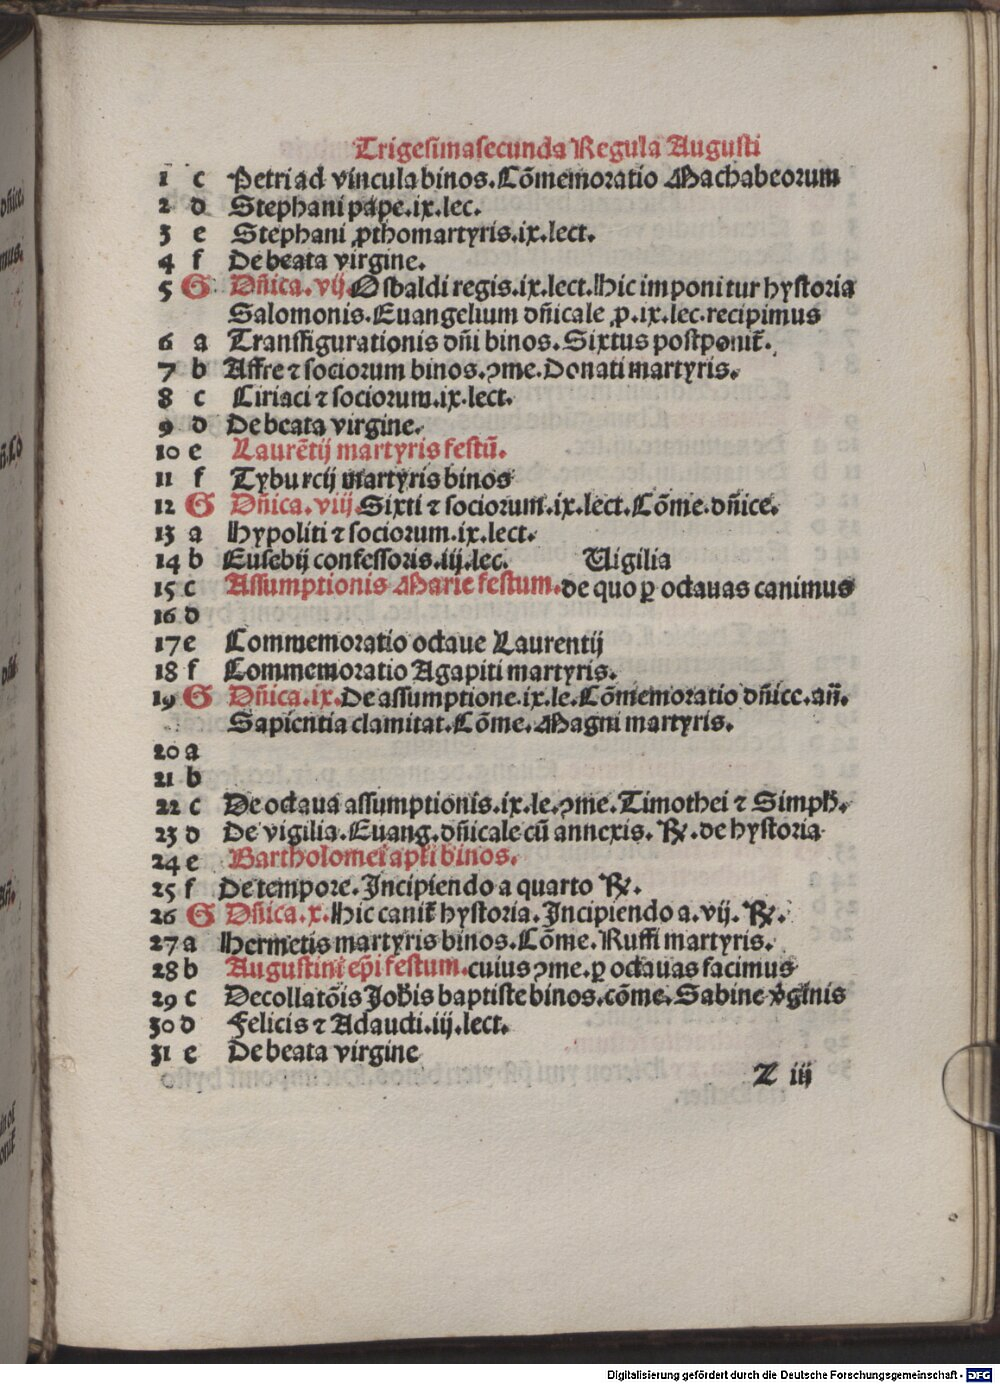 Trigesimasecunda Regula Augusti
1 c Petri ad vincula binos. Cõmemoratio Machabeorum
2 d Stephani pape. ix. lec.
3 e Stephani ꝓthomartyris. ix. lect.
4 f De beata virgine.
5 G Dñica. vij. Osbaldi regis. ix. lect. Hic imponitur hystoria
Salomonis. Euangelium dñicale ꝓ. ix. lec. recipimus
6 a Transfigurationis dñi binos. Sixtus postponit̃.
7 b Affre ⁊ sociorum binos. ꝯme. Donati martyris.
8 c Ciriaci ⁊ sociorum. ix. lect.
9 d De beata virgine.
10 e Laurẽtij martyris festũ.
11 f Tyburcij martyris binos
12 G Dñica. viij. Sixti ⁊ sociorum. ix. lect. Cõme. dñice.
13 a Hypoliti ⁊ sociorum. ix. lect.
14 b Eusebij confessoris. iij. lec. Uigilia
15 c Assumptionis Marie festum. de quo ꝑ octauas canimus
16 d
17 e Commemoratio octaue Laurentij
18 f Commemoratio Agapiti martyris.
19 G Dñica. ix. De assumptione. ix. le. Cõmemoratio dñice. añ.
Sapientia clamitat. Cõme. Magni martyris.
20 a
21 b
22 c De octaua assumptionis. ix. le. ꝯme. Timothei ⁊ Simph̃.
23 d De vigilia. Euang. dñicale cũ annexis. ℟. de hystoria
24 e Bartholomei apl̃i binos.
25 f De tempore. Incipiendo a quarto ℟.
26 G Dñica. x. Hic canit̃ hystoria. Incipiendo a. vij. ℟.
27 a Hermetis martyris binos. Cõme. Ruffi martyris.
28 b Augustini ep̃i festum. cuius ꝯme. ꝑ octauas facimus
29 c Decollatõis Joh̃is baptiste binos. cõme. Sabine v̓ginis
30 d Felicis ⁊ Adaucti. iij. lect.
31 e De beata virgine
Z iij
Digitalisierung gefördert durch die Deutsche Forschungsgemeinschaft - DFG